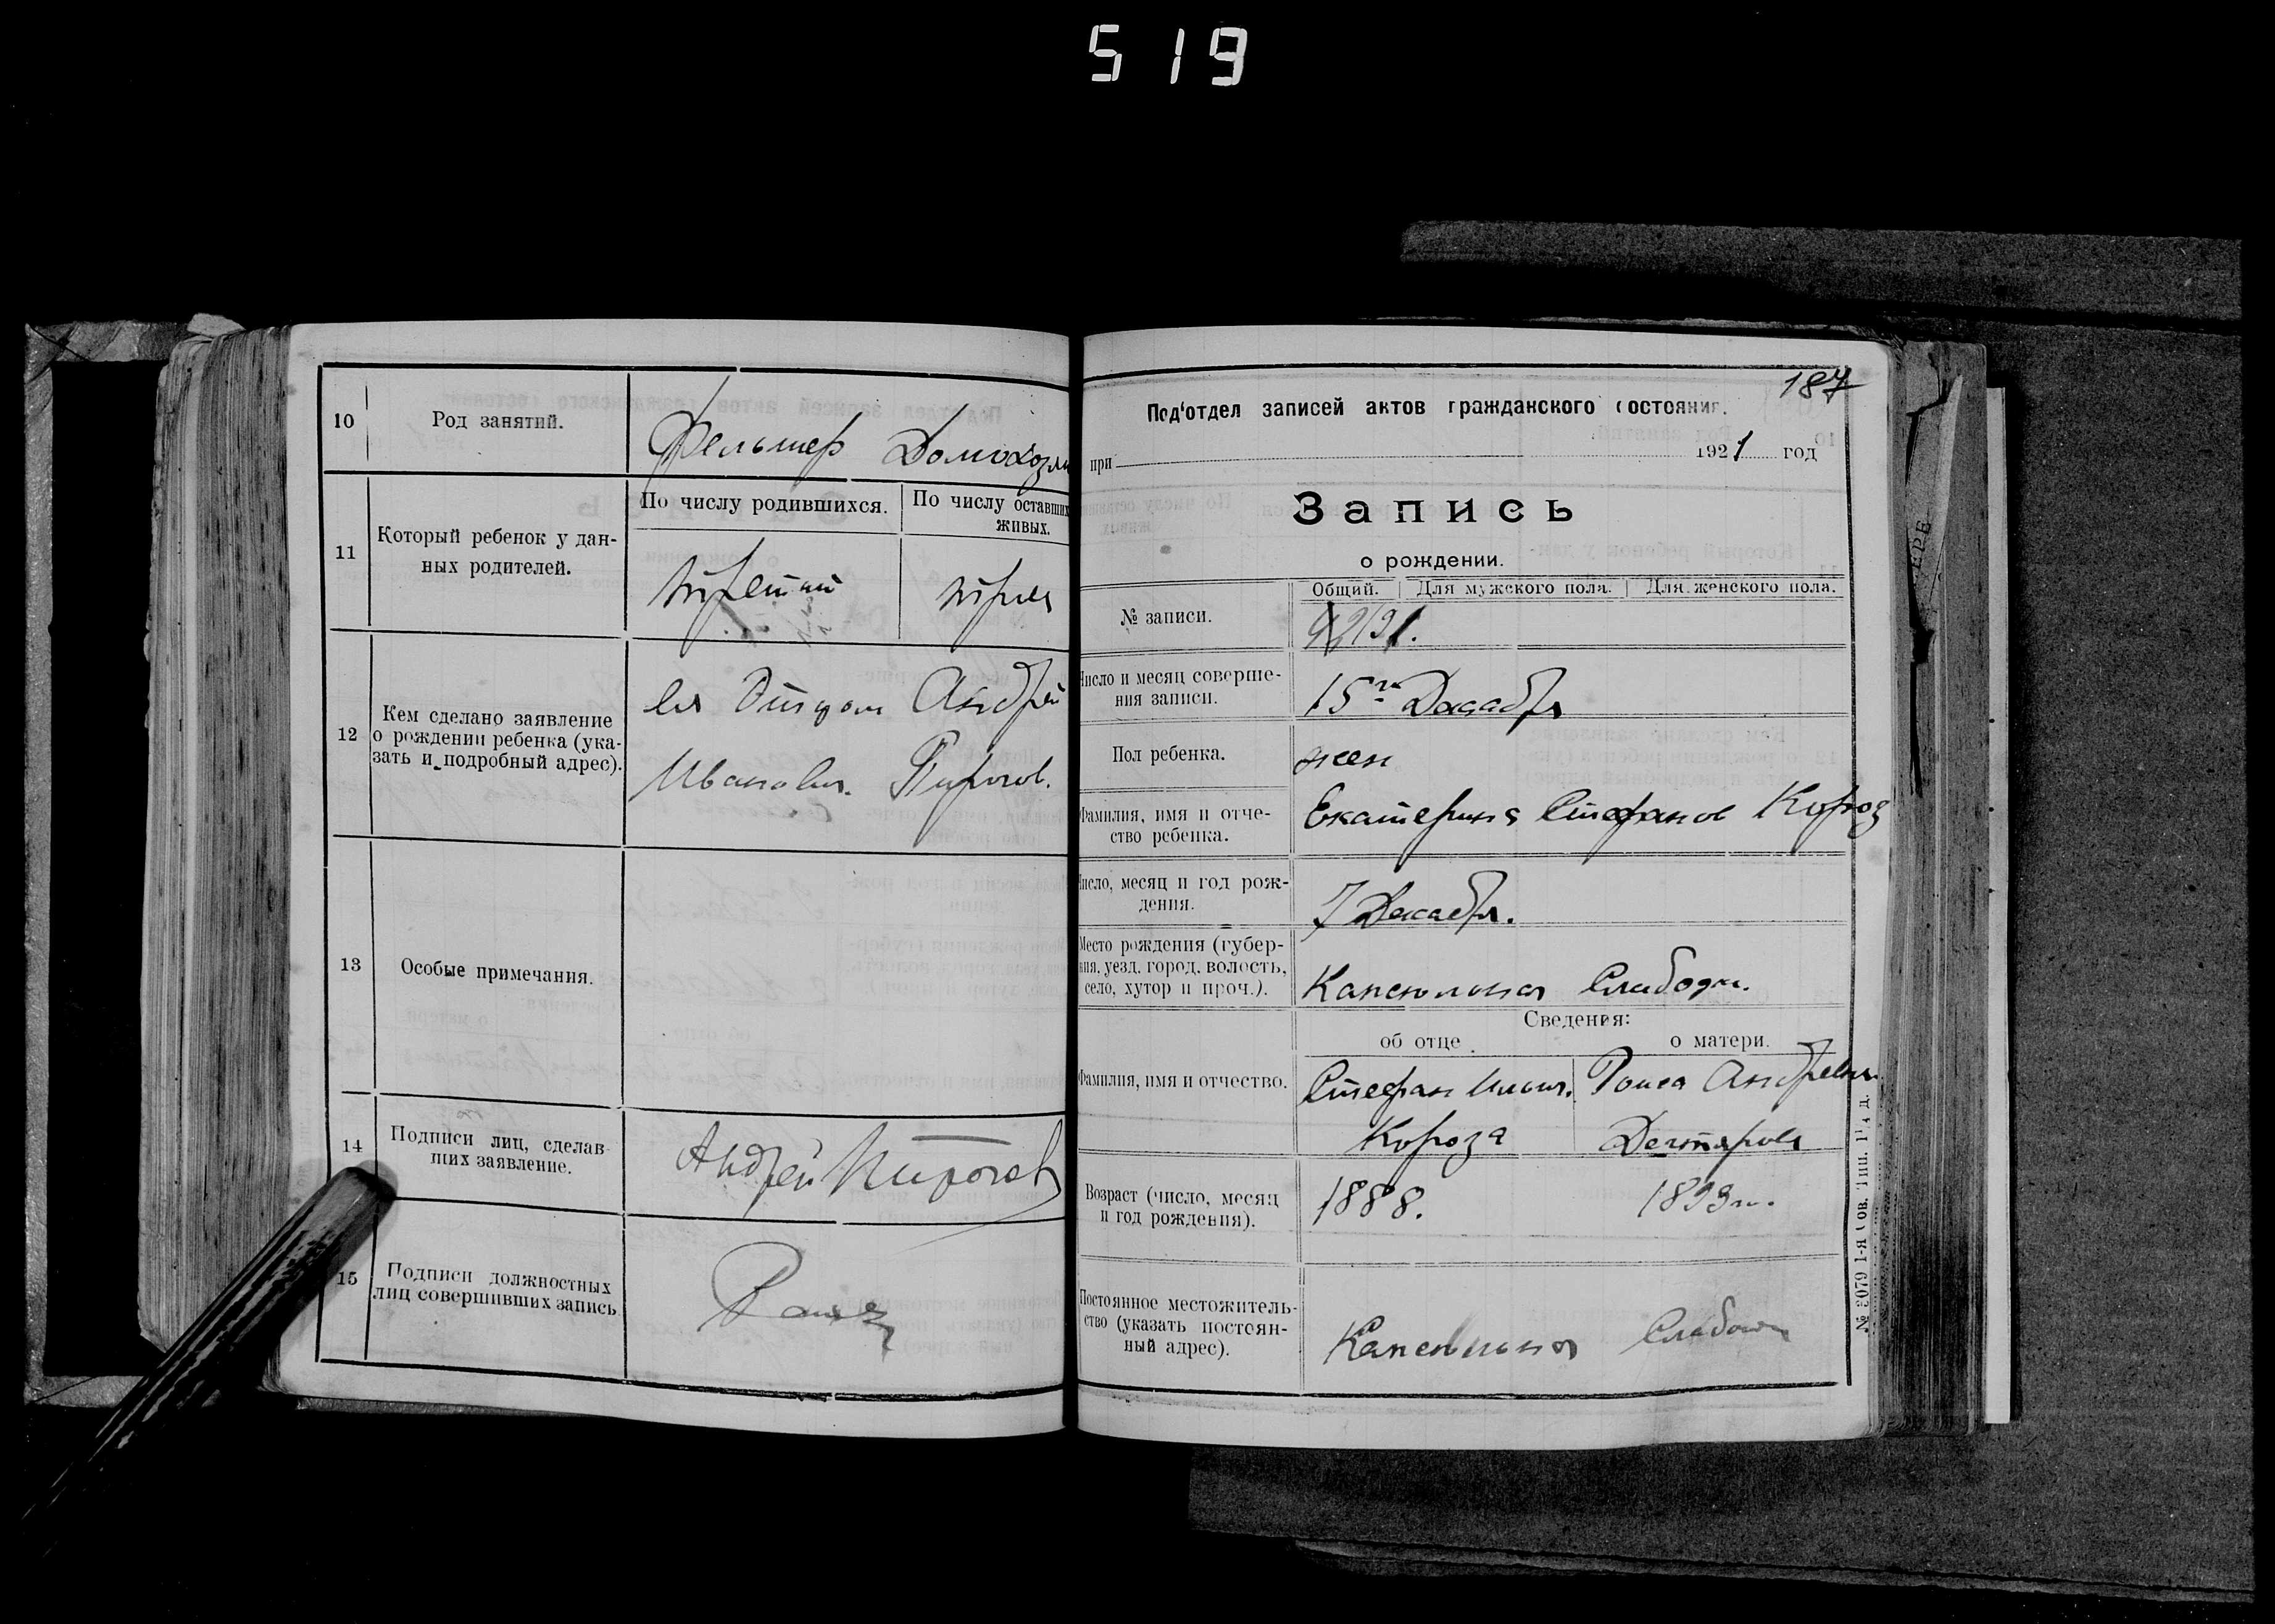 519
10
Род занятий.
Фельшер Домохозяй
11
Который ребенок у дан-
ных родителей.
По числу родившихся.
По числу оставших
живых.
третий
трое
12
Кем сделано заявление
о рождении ребенка (ука-
зать и подробный адрес).
ея Отцом Андрей
Иванович. Пирогов.
13
Особые примечания.
14
Подписи лиц, сделав-
ших заявление.
Андрей Пирогов
15
Подписи должностных
лиц совершивших запись
187
Под'отдел записей актов гражданского состояния.
при 1921 год
Запись
о рождении.
Общий. Для мужского пола. Для женского пола.
№ записи.
Число и месяц соверше-
ния записи.
15го Декабря
Пол ребенка.
жен
Фамилия, имя и отче-
ство ребенка.
Екатерина Стефанов Короза
Число, месяц и год рож-
дения.
7 Декабря.
Место рождения (губер-
ния, уезд, город, волость,
село, хутор и проч.).
Капсюльная Слабодка.
Сведения:
об отце о матери.
Фамилия, имя и отчество.
Стефан Ильич. Раиса Андревна
Короза Дегтярова
Возраст (число, месяц
и год рождения).
1888. 1893 г.
Постоянное местожитель-
ство (указать постоян-
ный адрес).
Капсюльная Слабодка
№ 2079 1-я Сов. Тип.